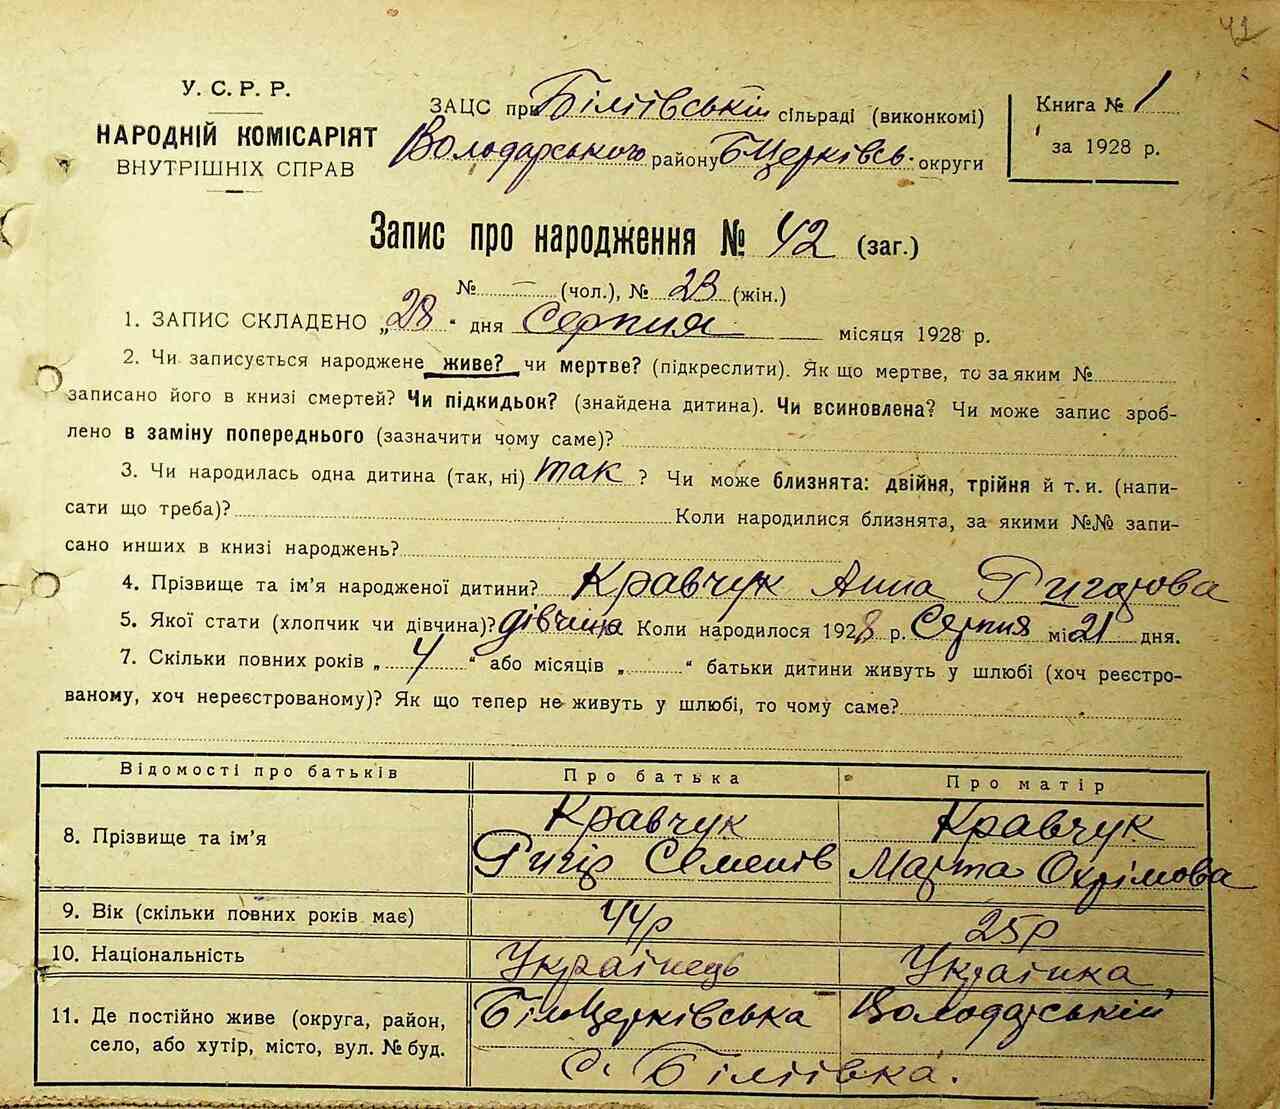 42
У. С. Р. Р.
НАРОДНІЙ КОМІСАРІЯТ
ВНУТРІШНІХ СПРАВ
ЗАЦС при Біліївській сільраді (виконкомі)
Володарського району БЦерківсь. округи
Книга № 1
за 1928 р.
Запис про народження № 42 (заг.)
№ — (чол.), № 23 (жін.)
1. ЗАПИС СКЛАДЕНО „28“ дня Серпня місяця 1928 р.
2. Чи записується народжене живе? чи мертве? (підкреслити). Як що мертве, то за яким №
записано його в книзі смертей? Чи підкидьок? (знайдена дитина). Чи всиновлена? Чи може запис зроб-
лено в заміну попереднього (зазначити чому саме)?
3. Чи народилась одна дитина (так, ні) так ? Чи може близнята: двійня, трійня й т. и. (напи-
сати що треба)? Коли народилися близнята, за якими №№ запи-
сано инших в книзі народжень?
4. Прізвище та ім'я народженої дитини? Кравчук Анна Ригорова
5. Якої стати (хлопчик чи дівчина)? дівчина Коли народилося 1928 р. Серпня мі 21 дня.
7. Скільки повних років „ 4 “ або місяців „ “ батьки дитини живуть у шлюбі (хоч реєстро-
ваному, хоч нереєстрованому)? Як що тепер не живуть у шлюбі, то чому саме?
Відомості про батьків Про батька Про матір
8. Прізвище та ім'я Кравчук Кравчук
Ригір Семенів Марта Охрімова
9. Вік (скільки повних років має) 44р 25р
10. Національність Українець Українка
11. Де постійно живе (округа, район, БілоЦерківська Володарській
село, або хутір, місто, вул. № буд. с. Біліївка.